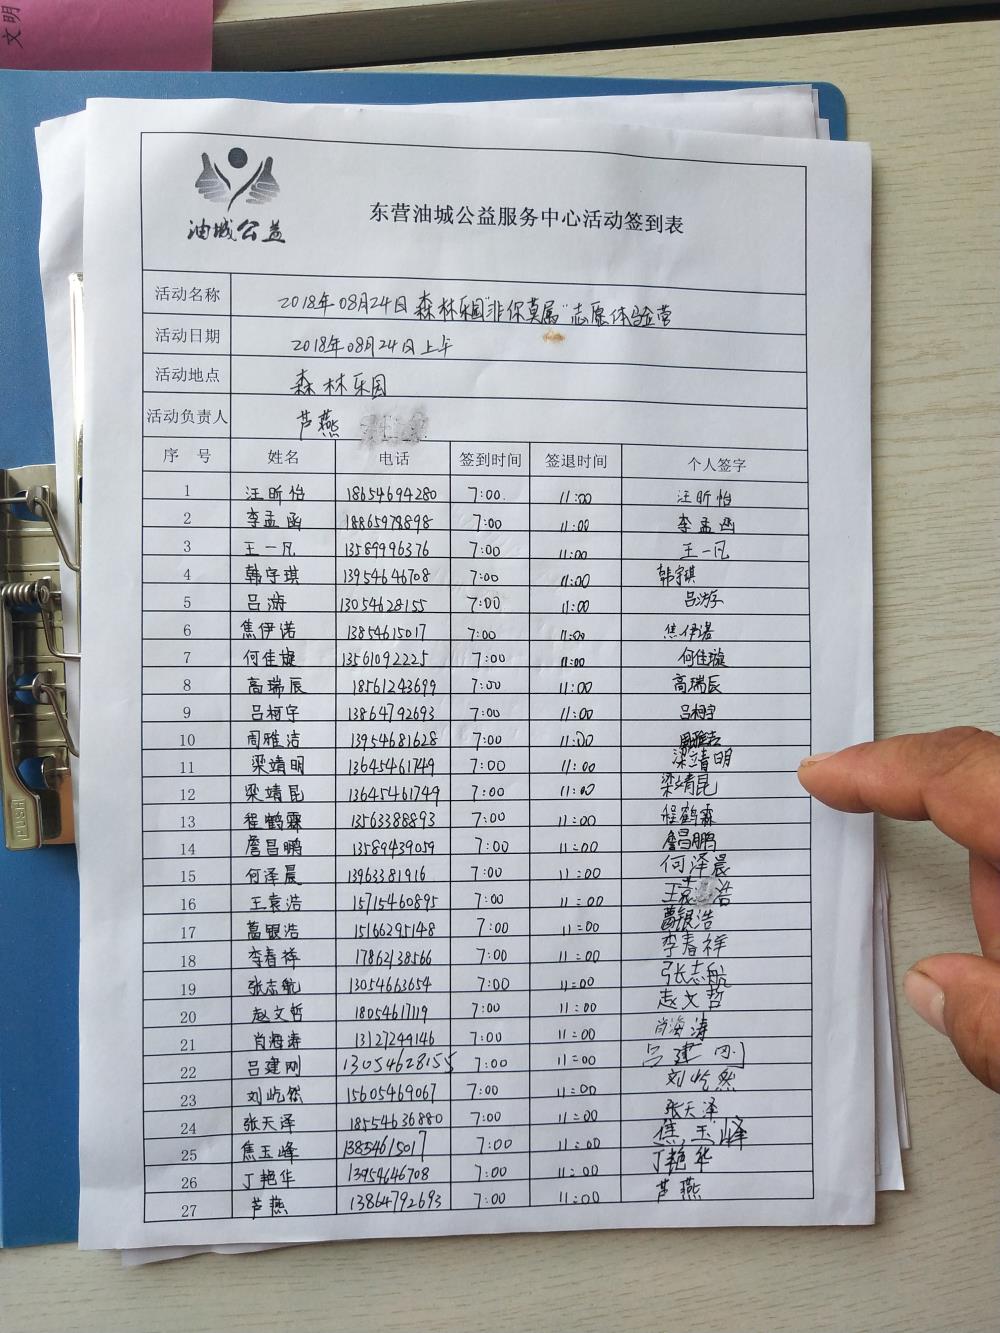 文明
油城公益
东营油城公益服务中心活动签到表
活动名称 2018年08月24日 森林乐园"非你莫属"志愿体验营
活动日期 2018年08月24日上午
活动地点 森林乐园
活动负责人 芦燕
序 号 姓名 电话 签到时间 签退时间 个人签字
1 汪昕怡 18654694280 7:00. 11:00 汪昕怡
2 李孟函 18865978898 7:00 11:00 李孟函
3 王一凡 13589996376 7:00 11:00 王一凡
4 韩宇琪 13954646708 7:00 11:00 韩宇琪
5 吕游 13054628155 7:00 11:00 吕游
6 焦伊诺 13854615017 7:00 11:00 焦伊诺
7 何佳璇 13561092225 7:00 11:00 何佳璇
8 高瑞辰 18561243699 7:00 11:00 高瑞辰
9 吕柯宇 13864792693 7:00 11:00 吕柯宇
10 周雅洁 13954681628 7:00 11:00 周雅洁
11 梁靖明 13645461749 7:00 11:00 梁靖明
12 梁靖昆 13645461749 7:00 11:00 梁靖昆
13 程鹤霖 13563388893 7:00 11:00 程鹤霖
14 詹昌鹏 13589439059 7:00 11:00 詹昌鹏
15 何泽晨 13963381916 7:00 11:00 何泽晨
16 王袁浩 15715460895 7:00 11:00 王袁浩
17 葛银浩 15166295148 7:00 11:00 葛银浩
18 李春祥 17862138566 7:00 11:00 李春祥
19 张志航 13054663654 7:00 11:00 张志航
20 赵文哲 18054617119 7:00 11:00 赵文哲
21 肖海涛 13127244146 7:00 11:00 肖海涛
22 吕建刚 13054628155 7:00 11:00 吕建刚
23 刘屹然 15605469067 7:00 11:00 刘屹然
24 张天泽 18554636880 7:00 11:00 张天泽
25 焦玉峰 13854615017 7:00 11:00 焦玉峰
26 丁艳华 13954646708 7:00 11:00 丁艳华
27 芦燕 13864792693 7:00 11:00 芦燕
PUSH